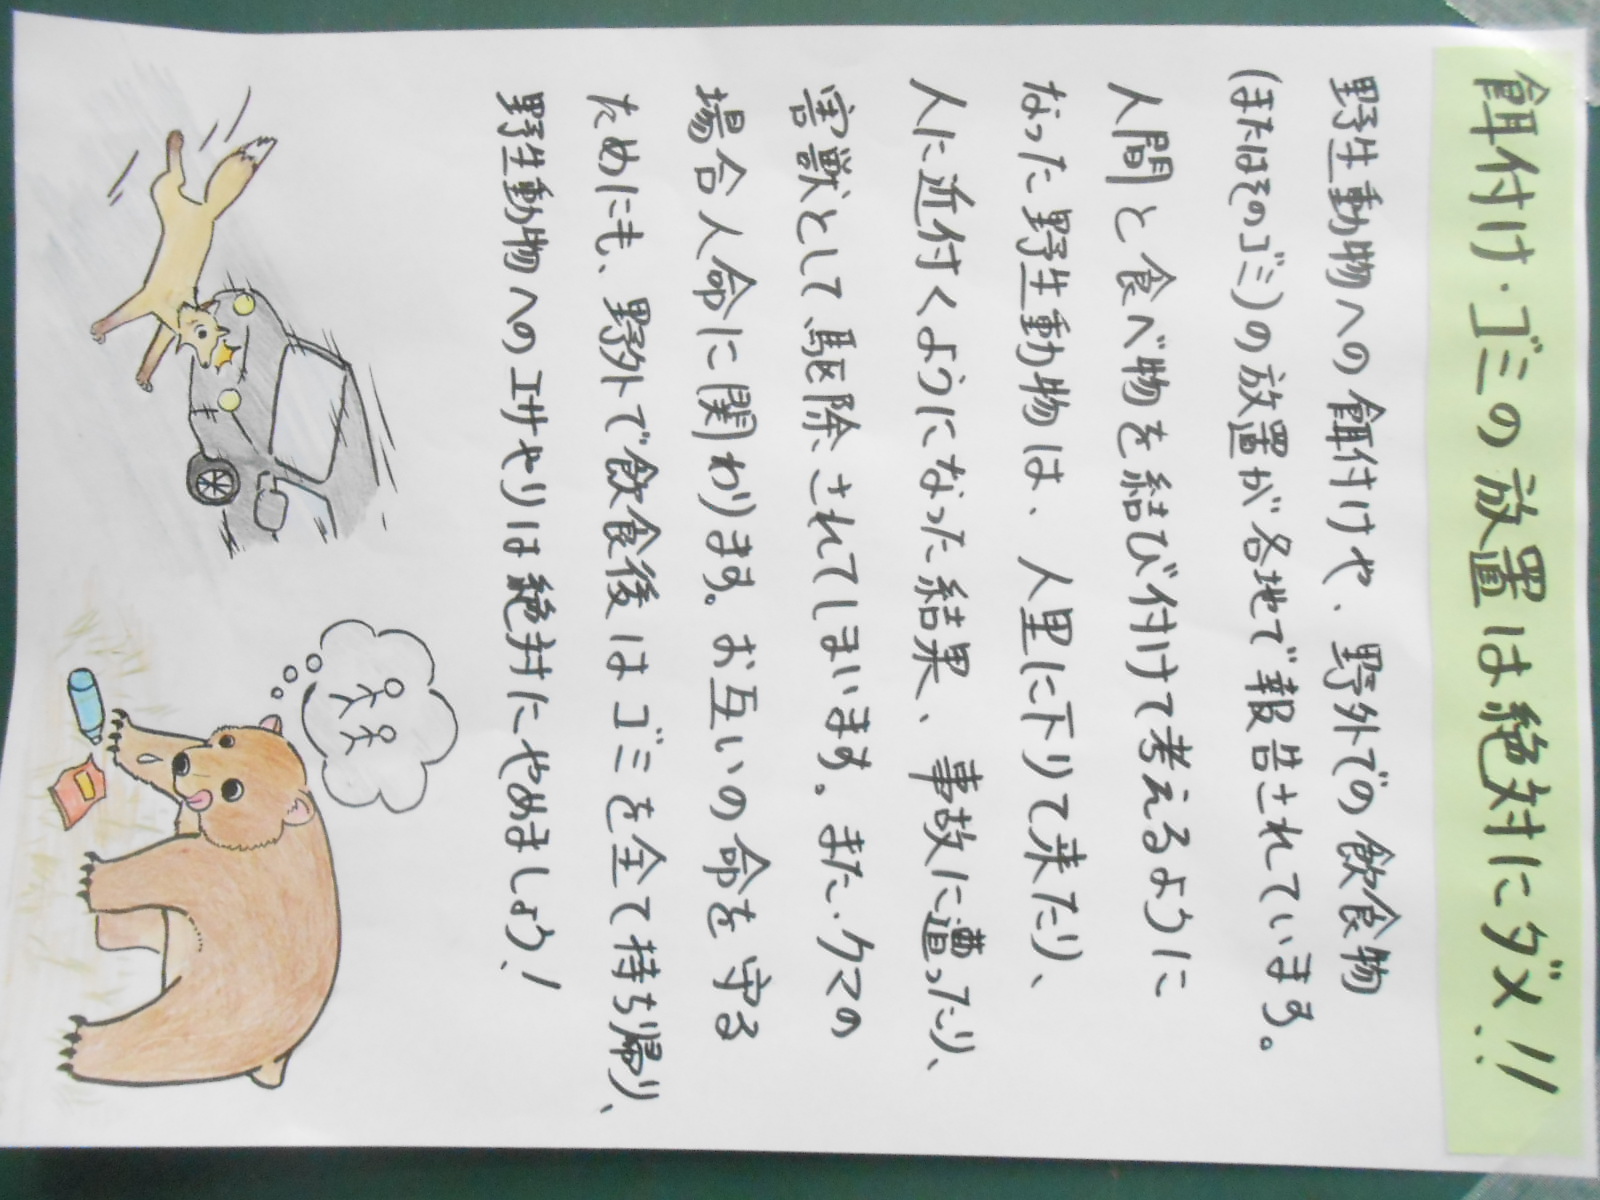 餌付け・ゴミの放置は絶対にダメ!!
野生動物への餌付けや、野外での飲食物
(またはそのゴミ)の放置が各地で報告されています。
人間と食べ物を結び付けて考えるように
なった野生動物は、人里に下りて来たり、
人に近付くようになった結果、事故に遭ったり、
害獣として駆除されてしまいます。また、クマの
場合人命に関わります。お互いの命を守る
ためにも、野外で飲食後はゴミを全て持ち帰り、
野生動物へのエサやりは絶対にやめましょう!